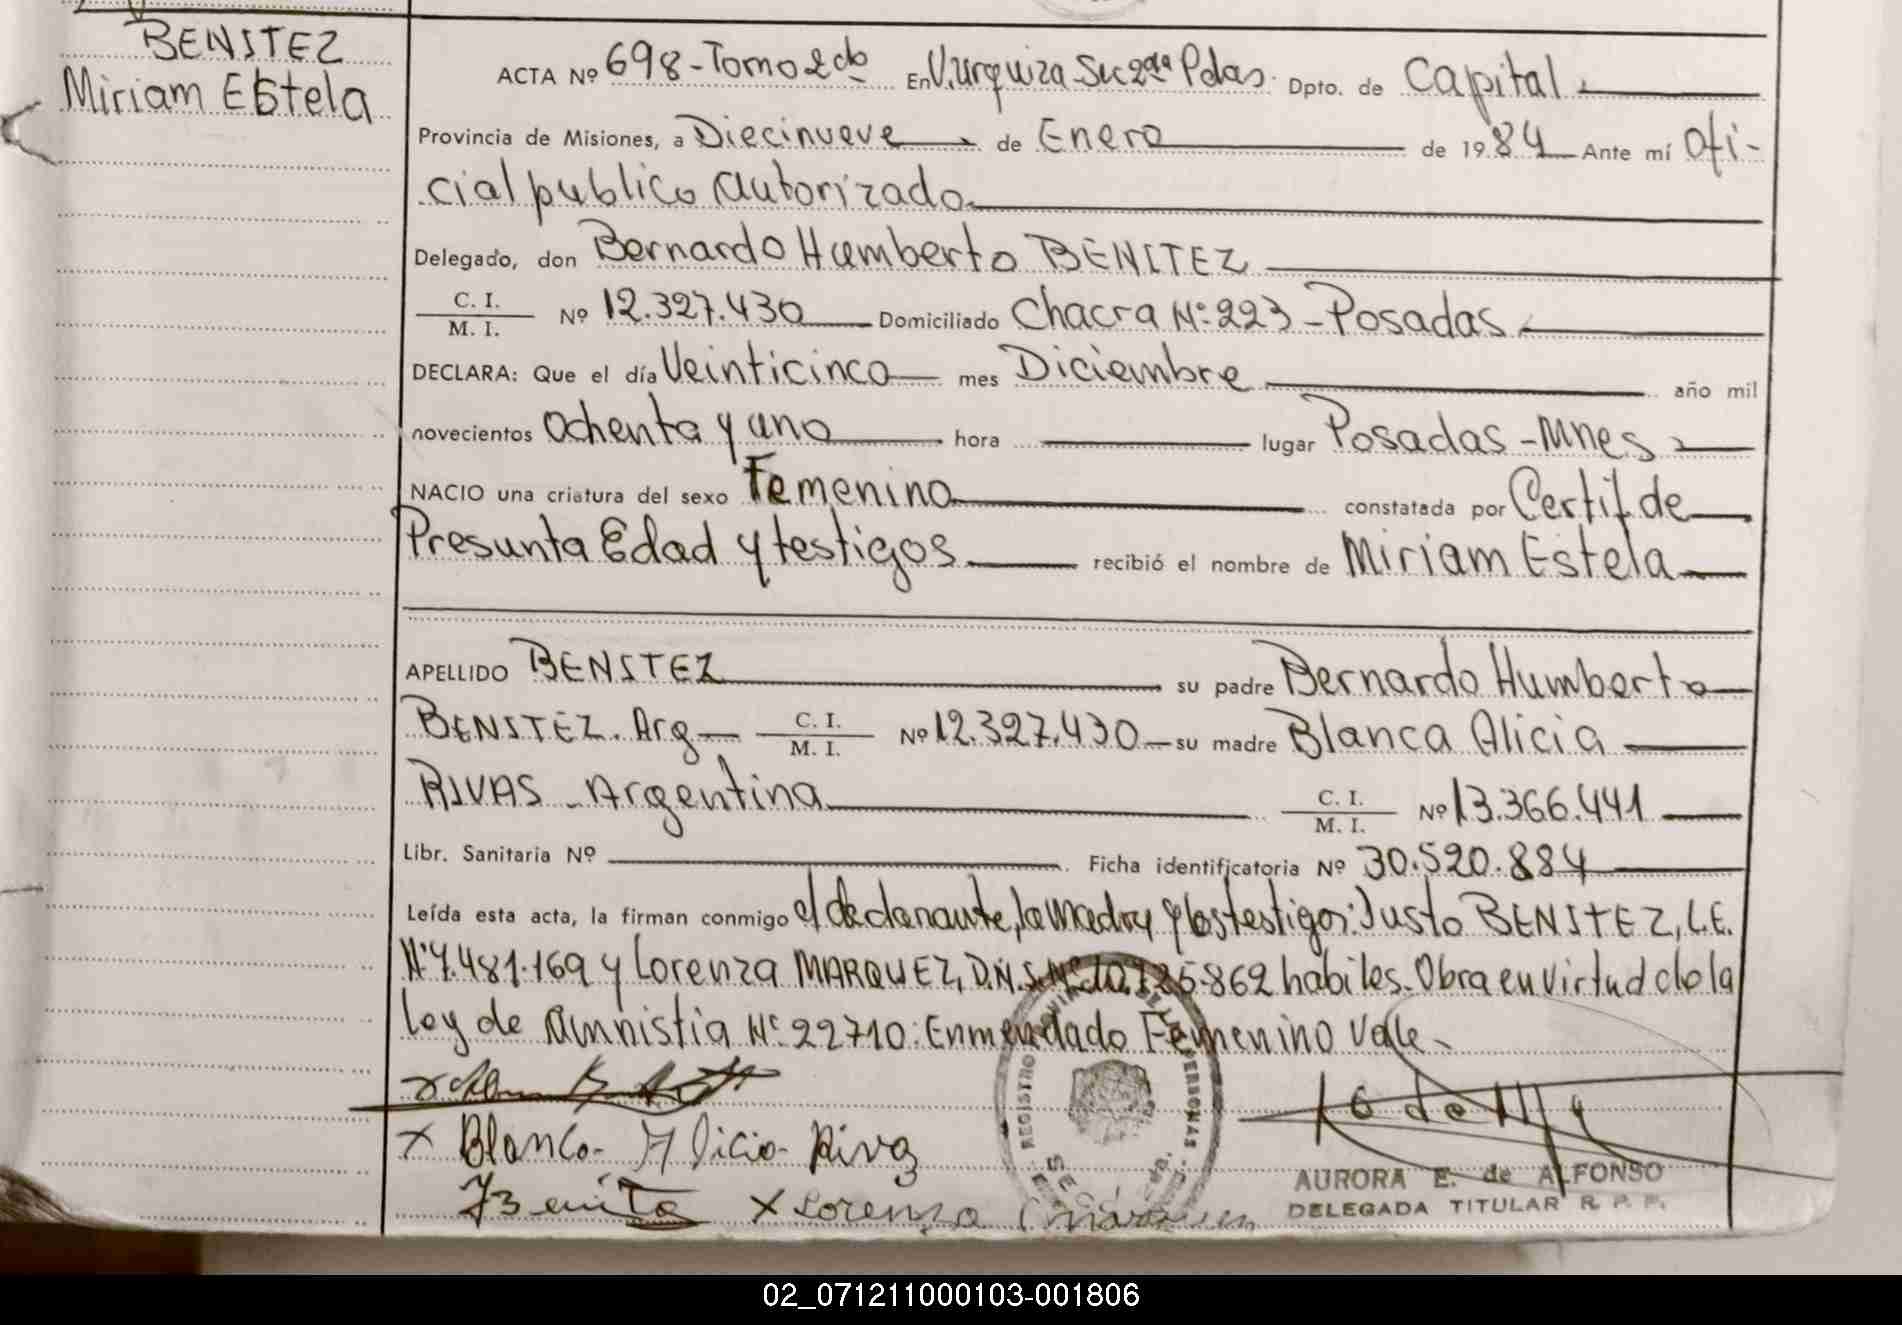 BENITEZ
Miriam Estela
ACTA Nº 698-Tomo 2do En V. Urquiza Sec 2da Pdas. Dpto. de Capital
Provincia de Misiones, a Diecinueve de Enero de 1984 Ante mí Ofi-
cial publico autorizado
Delegado, don Bernardo Humberto BENITEZ
C. I.
M. I. Nº 12.327.430 Domiciliado Chacra Nº 223-Posadas
DECLARA: Que el día Veinticinco mes Diciembre año mil
novecientos Ochenta y uno hora lugar Posadas-Mnes
NACIO una criatura del sexo Femenino constatada por Certif. de
Presunta Edad y testigos recibió el nombre de Miriam Estela
APELLIDO BENITEZ su padre Bernardo Humberto
BENITEZ. Arg C. I.
M. I. Nº 12.327.430 su madre Blanca Alicia
RIVAS - Argentina C. I.
M. I. Nº 13.366.441
Libr. Sanitaria Nº Ficha identificatoria Nº 30.520.884
Leída esta acta, la firman conmigo el declarante, la madre y los testigos: Justo BENITEZ, L.E.
Nº 7.481.169 y Lorenza MARQUEZ, D.N.I. Nº 10.125.862 habiles. Obra en virtud de la
ley de Amnistia Nº 22710: Enmendado Femenino Vale-
x Blanca Alicia Riva
x Lorenza
REGISTRO PERSONAS
AURORA E. de ALFONSO
DELEGADA TITULAR R. P. P.
02_071211000103-001806